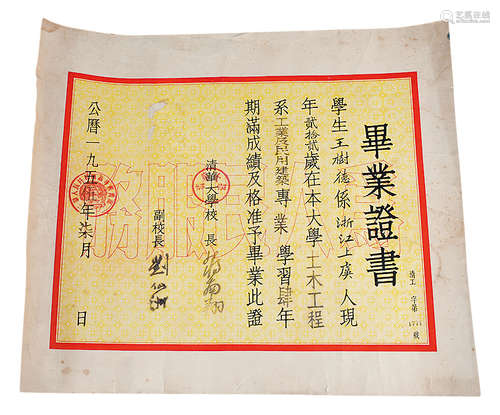 畢業證書
清工 字第 1771 號
學生王樹德係浙江上虞人現
年貳拾貳歲在本大學土木工程
系工業及民用建築專業學習肆年
期滿成績及格准予畢業此證
清華大學校長 蔣南翔
副校長 劉仙洲
公曆一九五伍年柒月 日